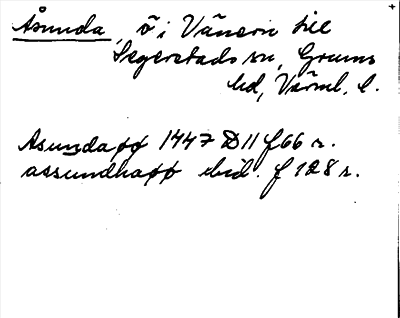 Åsunda, ö i Vänern till
Segerstads sn, Grums
hd, Värml. l.
Asundaøø 1447 D 11 f 66 r.
assundhaøø ibid. f 128 r.